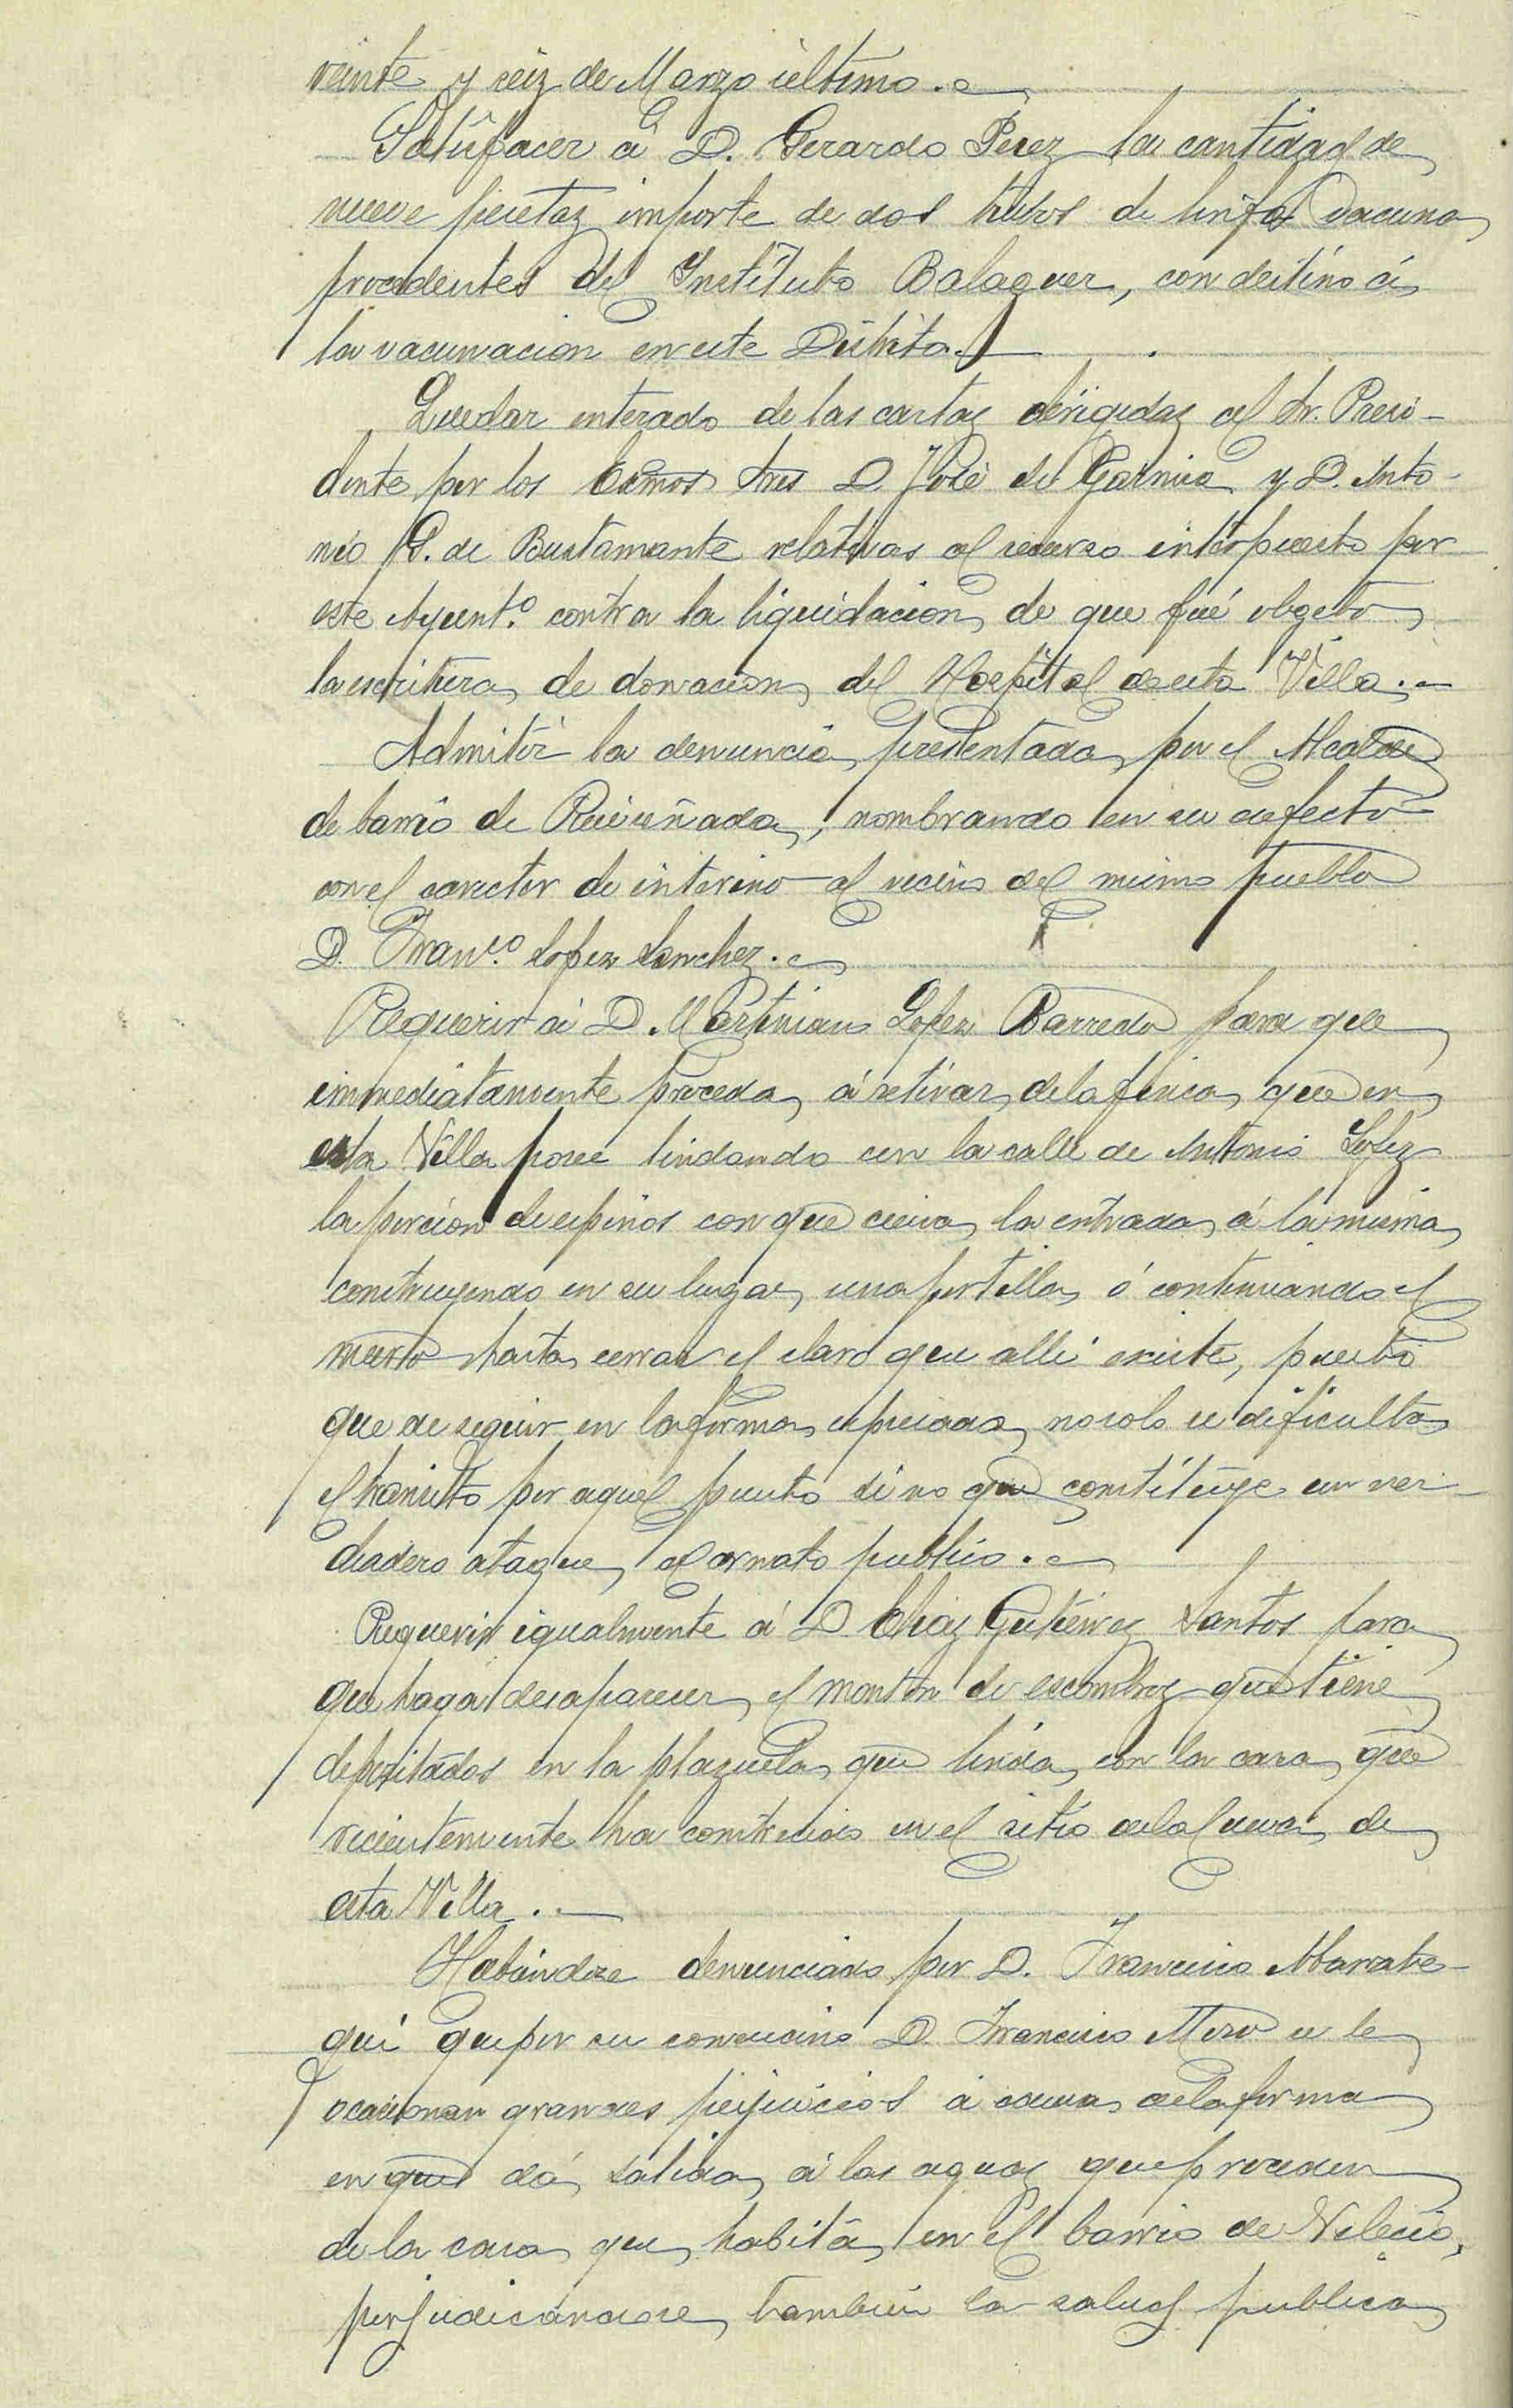 veinte y seiz de Marzo último.
Satisfacer á D. Gerardo Perez la cantidad de
nueve pesetaz importe de dos tubos de linfa vacuna
procedentes del Instituto Balaguer, con destino á
la vacunacion en este Distrito.
Quedar enterado de las cartaz dirigidaz al Sr. Presi-
dente por los Exmos Sres D. José de Garnica y D. Anto-
nio G. de Bustamante relativas al recurso interpuesto por
este Ayunt.º contra la liquidacion de que fué objeto
la escritura de donacion del Hospital de esta Villa.
Admitir la denuncia presentada por el Alcalde
de barrio de Ruiseñada, nombrando en su defecto
con el caracter de interino al vecino del mismo pueblo
D. Fran.co Lopez Sanchez.
Requerir á D. Martiniano Lopez Barreda para que
immediatamente proceda á retirar de la finca que en
esta Villa posee lindando con la calle de Antonio Lopez
la porcion de espinos con que cierra la entrada á la misma
construyendo en su lugar una portilla ó continuando el
muro hasta cerrar el claro que alli existe, puesto
que de seguir en la forma espresada no solo se dificulta
el transito por aquel punto si no que constituye un ver-
dadero ataque al ornato publico.
Requerir igualmente á D. Eliaz Gutiérrez Santos para
que haga desaparecer el monton de escombroz que tiene
depositados en la plazuela que linda con la casa que
recientemente ha construido en el sitio de la Cueva de
esta Villa.
Habiéndose denunciado por D. Francisco Marrate-
gui que por su convecino D. Francisco Moro se le
ocasionan grandes perjuicios á causa de la forma
en que dá salida á las aguas que proceden
de la casa que habita en el barrio de Velecio,
perjudicandose tambien la salud publica